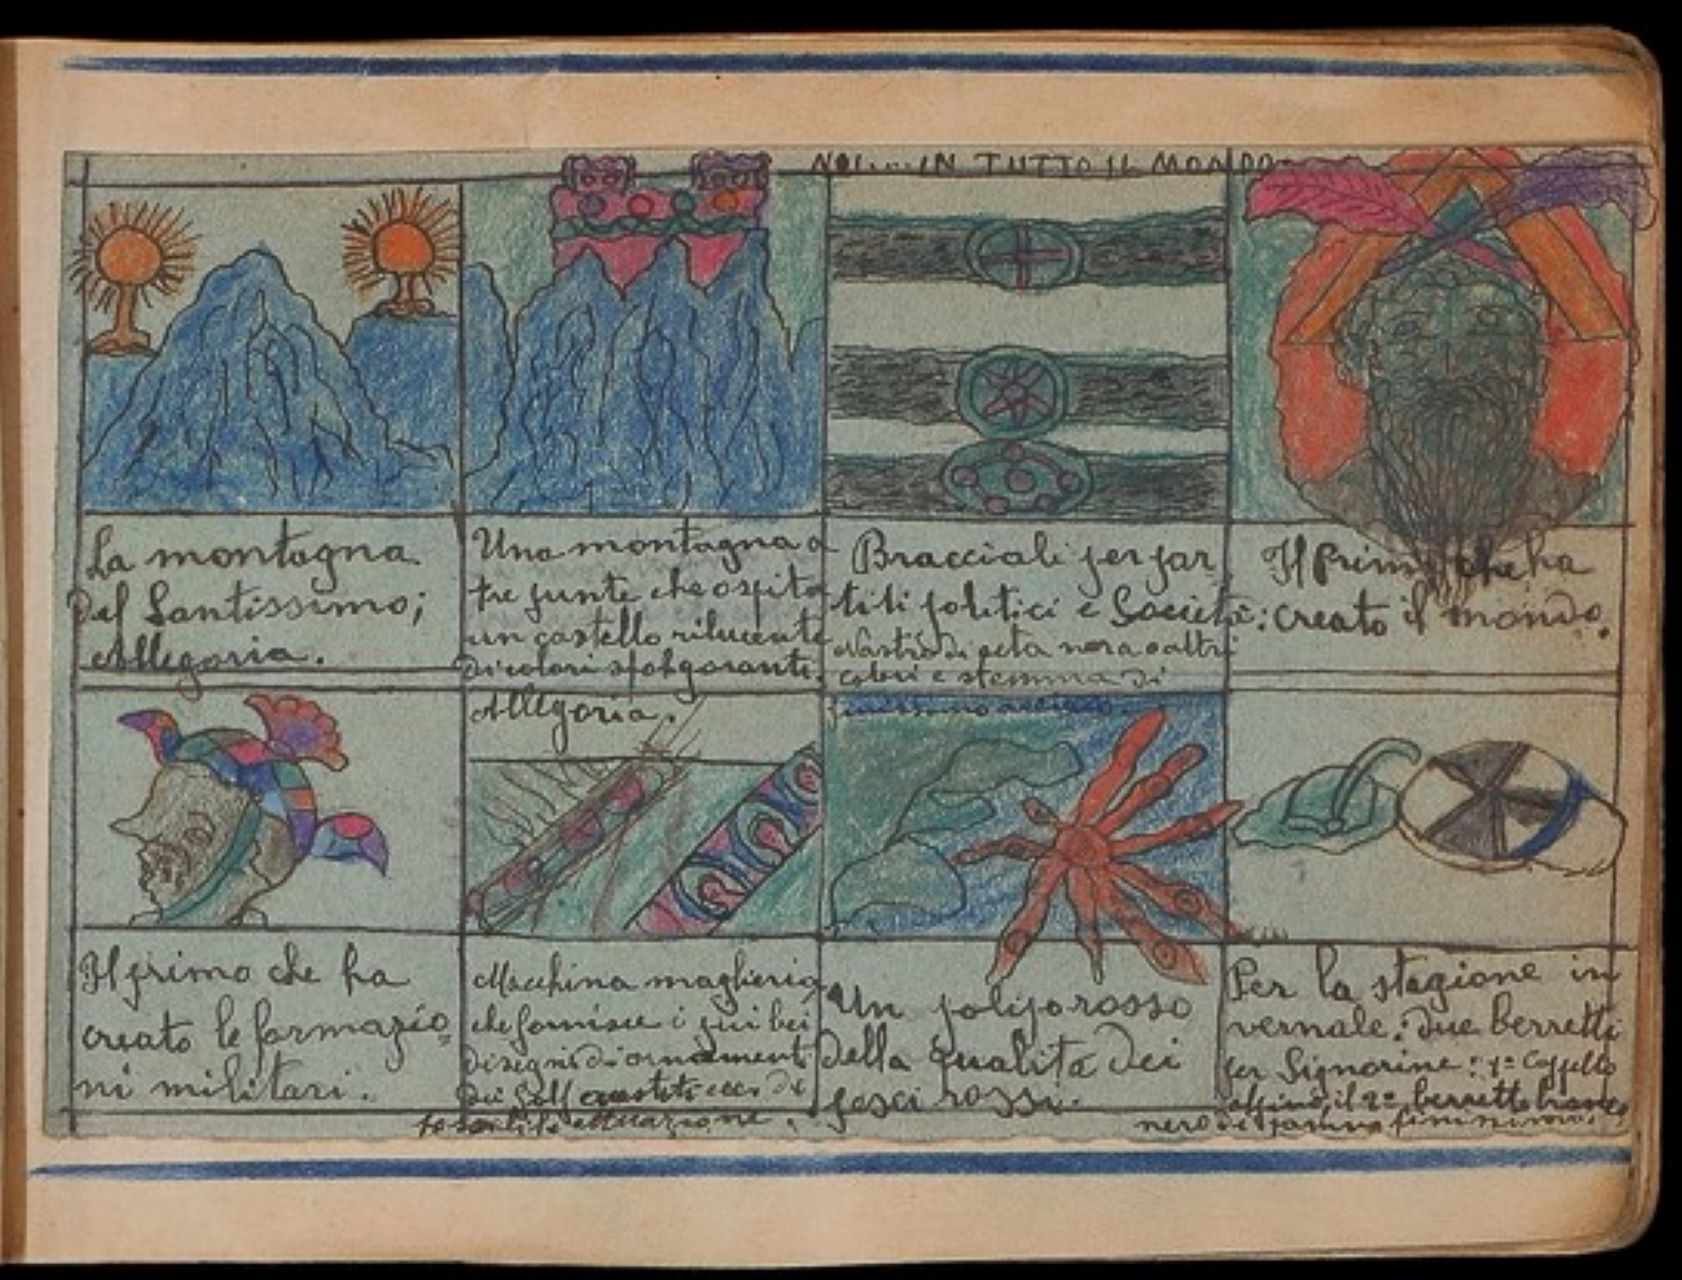 IN TUTTO IL MONDO
La montagna
del Santissimo;
Allegoria.
Una montagna a
tre punte che ospita
un castello rilucente
di colori sfolgoranti.
Allegoria.
Bracciali per par
titi politici e Società:
Nastro di seta nera o altri
colori e stemma di
Il primo che ha
creato il mondo.
Il primo che ha
creato le formazio
ni militari.
Macchina maglieria
che fornisce i più bei
disegni di ornamenti
dei Golf
Un polipo rosso
della qualità dei
pesci rossi.
Per la stagione in
vernale: due berretti
per Signorine: 1º Cappello
alpino, il 2º berretto bianco
nero